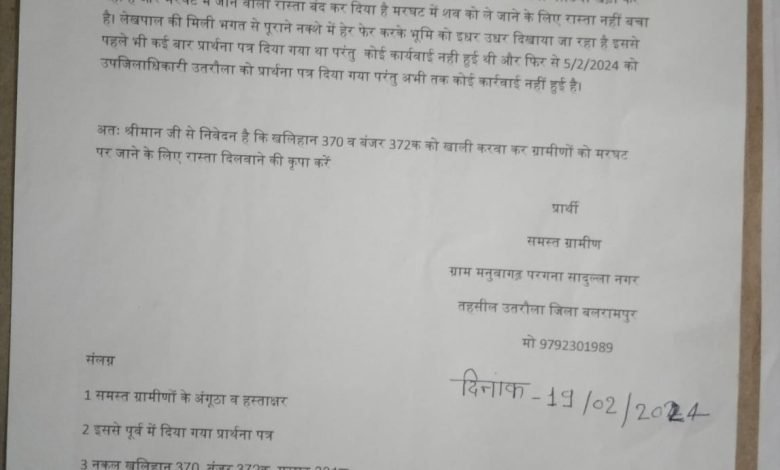 में जाने वाला रास्ता बंद कर दिया है मरघट में शव को ले जाने के लिए रास्ता नहीं बचा
है। लेखपाल की मिली भगत से पुराने नक्शे में हेर फेर करके भूमि को इधर उधर दिखाया जा रहा है इससे
पहले भी कई बार प्रार्थना पत्र दिया गया था परंतु कोई कार्यवाई नही हुई थी और फिर से 5/2/2024 को
उपजिलाधिकारी उतरौला को प्रार्थना पत्र दिया गया परंतु अभी तक कोई कार्रवाई नहीं हुई है।
अतः श्रीमान जी से निवेदन है कि खलिहान 370 व बंजर 372क को खाली करवा कर ग्रामीणों को मरघट
पर जाने के लिए रास्ता दिलवाने की कृपा करें
प्रार्थी
समस्त ग्रामीण
ग्राम मनुवागढ़ परगना सादुल्ला नगर
तहसील उतरौला जिला बलरामपुर
मो 9792301989
संलग्न
दिनांक - 19/02/2024
1 समस्त ग्रामीणों के अंगूठा व हस्ताक्षर
2 इससे पूर्व में दिया गया प्रार्थना पत्र
3 नकल खलिहान 370, बंजर 372क,